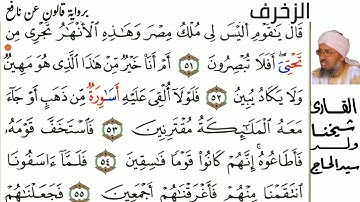 برواية قالون عن نافع
الزخرف
قَالَ يَٰقَوْمِ أَلَيْسَ لِي مُلْكُ مِصْرَ وَهَٰذِهِ الْأَنْهَٰرُ تَجْرِي مِن
تَحْتِيَ أَفَلَا تُبْصِرُونَ ٥١ أَمْ أَنَا خَيْرٌ مِّنْ هَٰذَا الَّذِي هُوَ مَهِينٌ
وَلَا يَكَادُ يُبِينُ ٥٢ فَلَوْلَا أُلْقِيَ عَلَيْهِ أَسَٰوِرَةٌ مِّن ذَهَبٍ أَوْ جَاءَ
مَعَهُ الْمَلَٰئِكَةُ مُقْتَرِنِينَ ٥٣ فَاسْتَخَفَّ قَوْمَهُ
فَأَطَاعُوهُ إِنَّهُمْ كَانُوا قَوْمًا فَٰسِقِينَ ٥٤ فَلَمَّا ءَاسَفُونَا
انتَقَمْنَا مِنْهُمْ فَأَغْرَقْنَٰهُمْ أَجْمَعِينَ ٥٥ فَجَعَلْنَٰهُمْ
القارئ
شيخنا
ولد
سيد الحاج